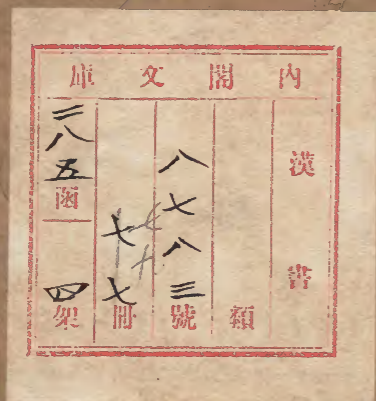 内閣文庫
漢書
類
八七八三號
七七冊
二八五函
四架